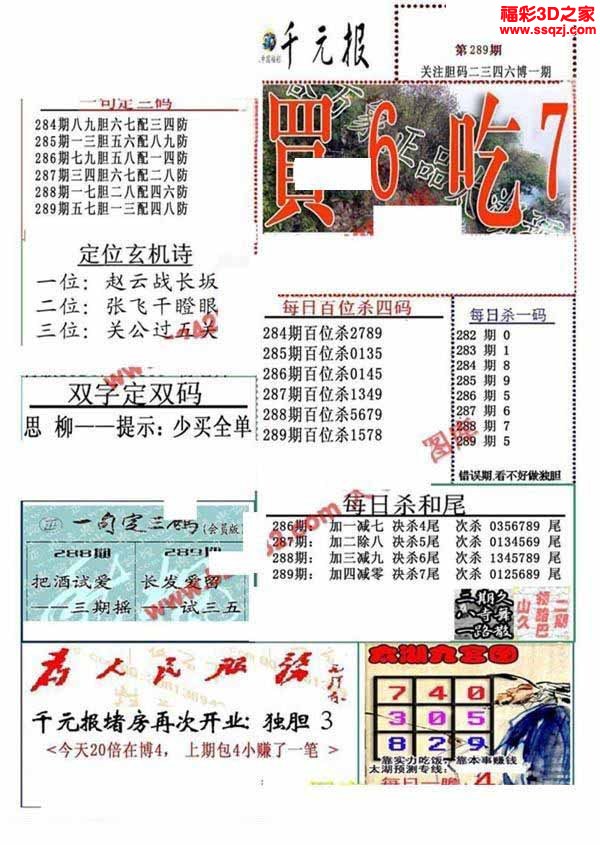 福彩3D之家
www.ssqzj.com
千元报
第289期
关注胆码二三四六博一期
一句定三码
284期八九胆六七配三四防
285期一三胆五六配八九防
286期七九胆五八配一四防
287期三四胆六七配二八防
288期一七胆二八配四六防
289期五七胆一三配四八防
買6吃7
定位玄机诗
一位：赵云战长坂
二位：张飞干瞪眼
三位：关公过五关
每日百位杀四码
284期百位杀2789
285期百位杀0135
286期百位杀0145
287期百位杀1349
288期百位杀5679
289期百位杀1578
每日杀一码
282 期 0
283 期 1
284 期 8
285 期 9
286 期 5
287 期 6
288 期 7
289 期 5
错误期,看不好做独胆
双字定双码
思 柳——提示：少买全单
每日杀和尾
286期： 加一减七 决杀4尾 次杀 0356789 尾
287期： 加二除八 决杀5尾 次杀 0134569 尾
288期： 加三减九 决杀6尾 次杀 1345789 尾
289期： 加四减零 决杀7尾 次杀 0125689 尾
一句定三码(会员版)
288期
把酒试爱
——三期摇
289期
长发爱留
——试三五
为人民服务
千元报堵房再次开业：独胆 3
<今天20倍在博4， 上期包4小赚了一笔>
太湖九宫图
7 4 0
3 0 5
8 2 9
靠实力吃饭，靠本事赚钱
太湖预测专线：